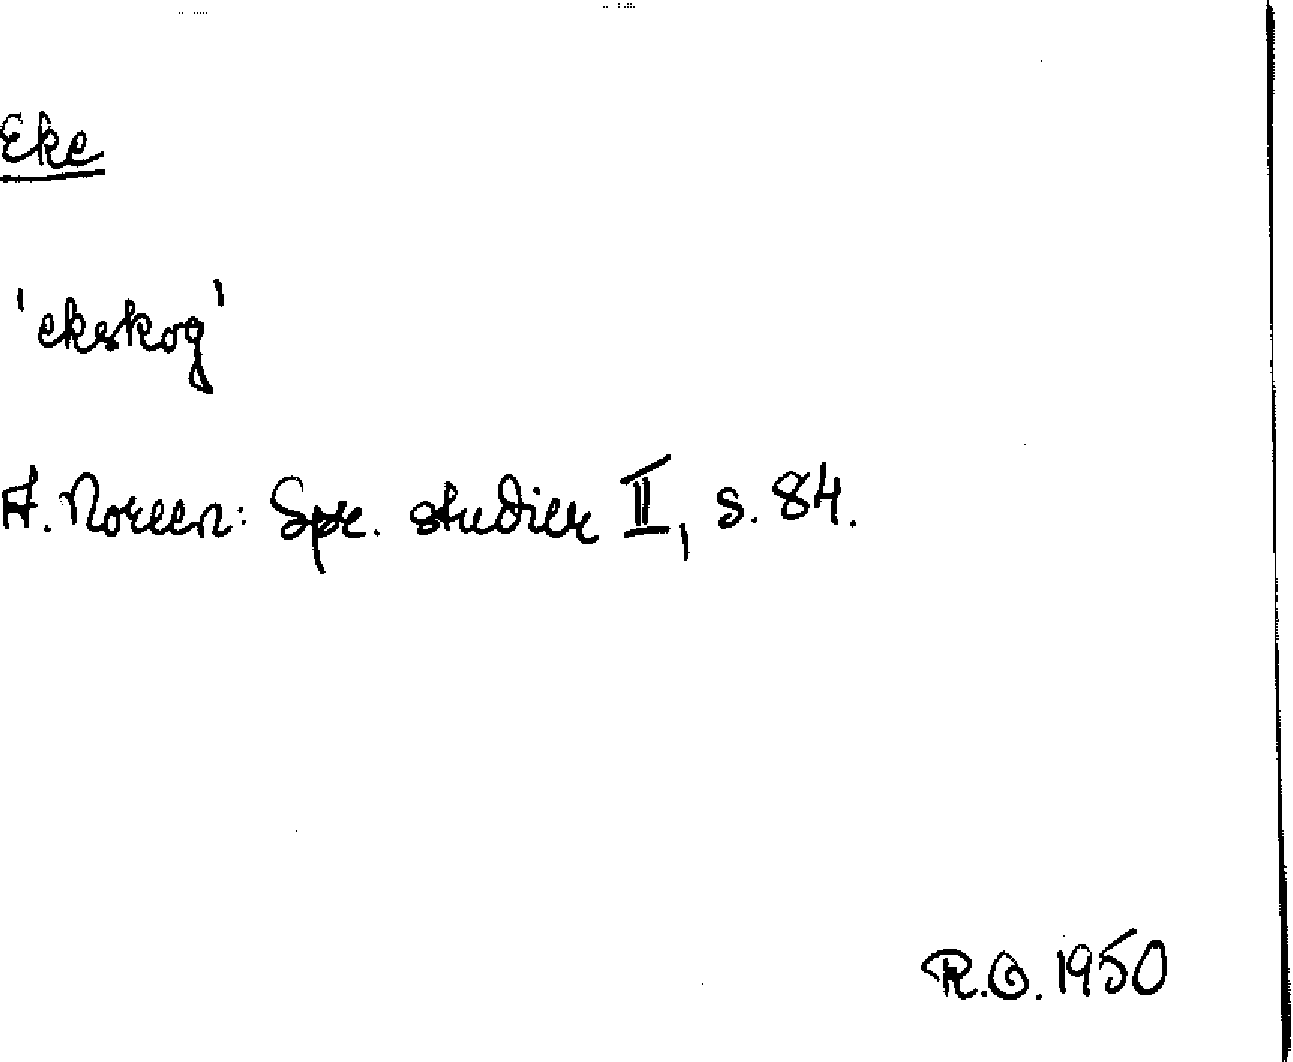 Eke
'ekskog'
A. Noreen: Spr. studier II, s. 84.
R.O. 1950